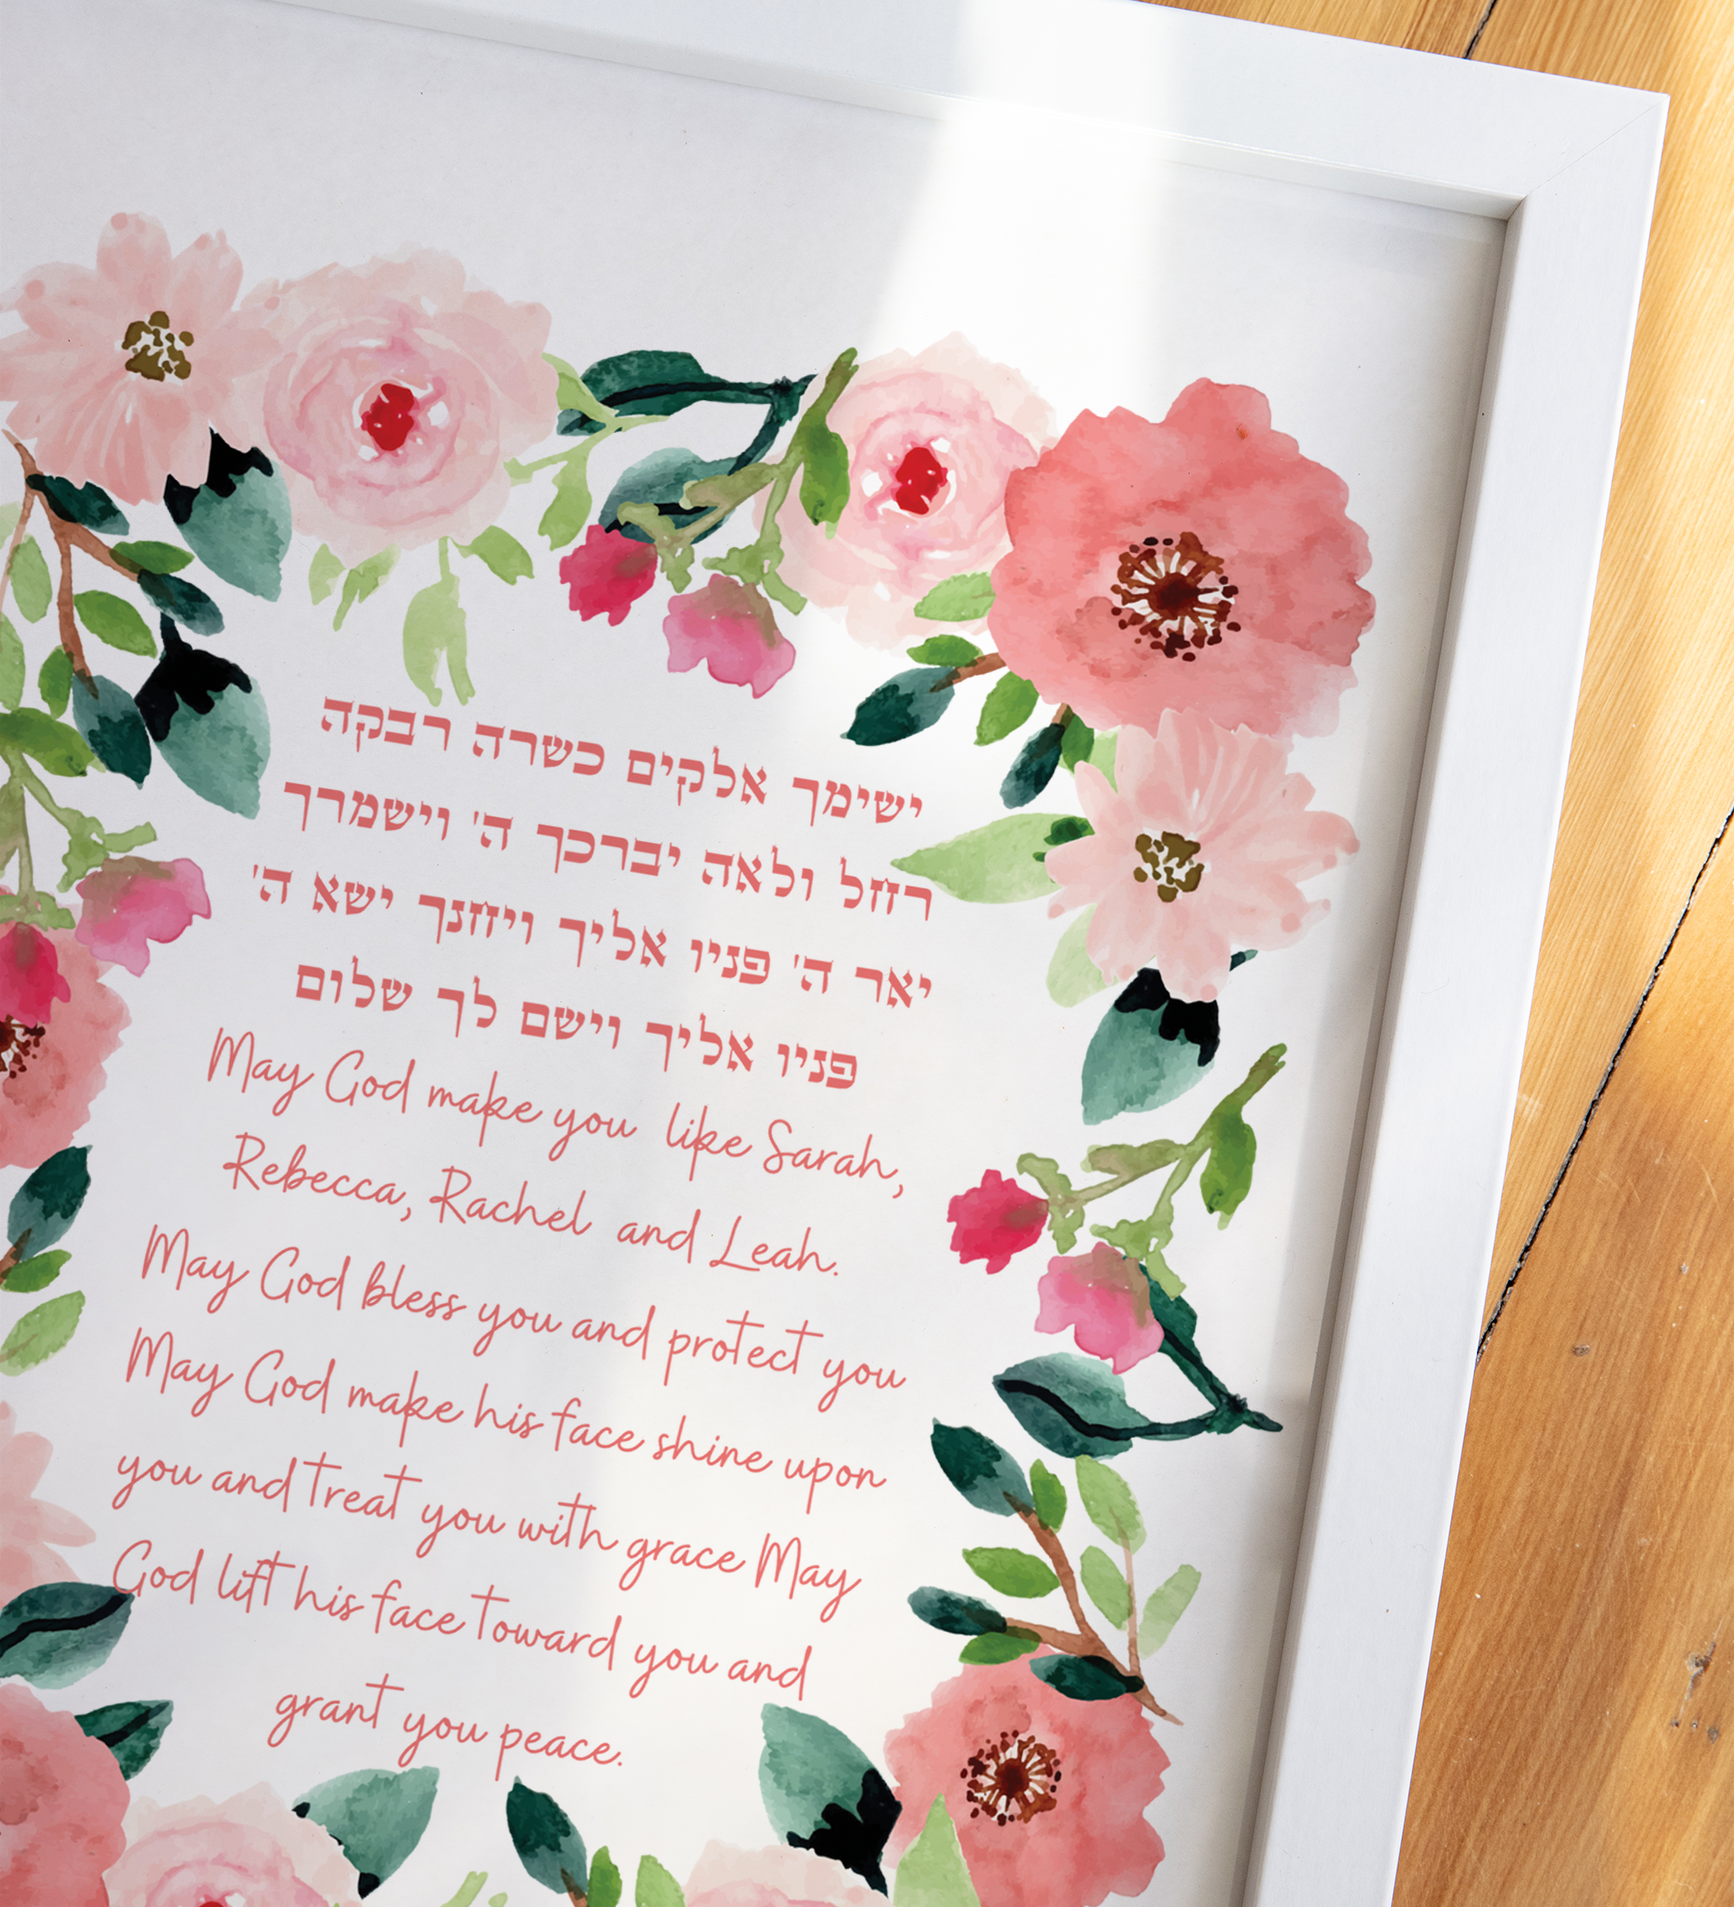 ישימך אלקים כשרה רבקה
רחל ולאה יברכך ה' וישמרך
יאר ה' פניו אליך ויחנך ישא ה'
פניו אליך וישם לך שלום
May God make you like Sarah,
Rebecca, Rachel and Leah.
May God bless you and protect you
May God make his face shine upon
you and treat you with grace May
God lift his face toward you and
grant you peace.